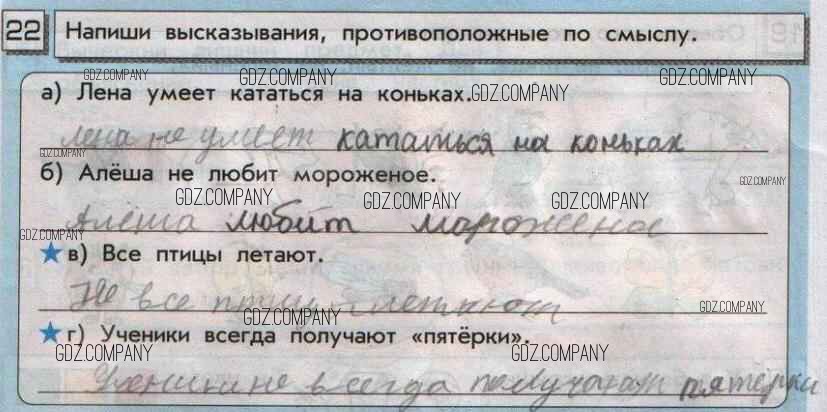 22 Напиши высказывания, противоположные по смыслу.
GDZ.COMPANY GDZ.COMPANY GDZ.COMPANY
а) Лена умеет кататься на коньках. GDZ.COMPANY GDZ.COMPANY
Лена не умеет кататься на коньках
GDZ.COMPANY
б) Алёша не любит мороженое. GDZ.COMPANY
GDZ.COMPANY GDZ.COMPANY GDZ.COMPANY
Алёша любит мороженое
GDZ.COMPANY
★ в) Все птицы летают.
Не все птицы летают
GDZ.COMPANY GDZ.COMPANY
★ г) Ученики всегда получают «пятёрки».
GDZ.COMPANY GDZ.COMPANY
Ученики не всегда получают пятёрки